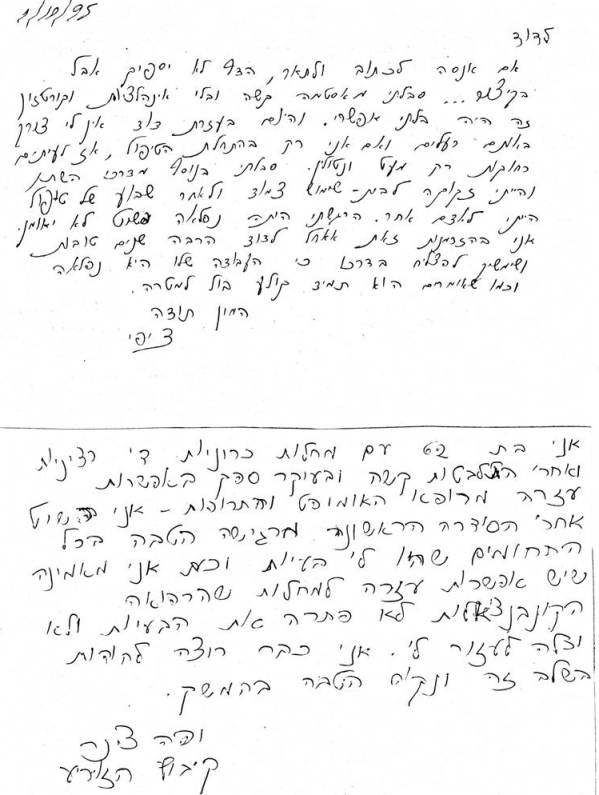 1/10/95
לדוד
אם אנסה לכתוב ולתאר, הדף לא יספיק אבל
בקיצור... סבלתי מאסטמה קשה ובלי אינהלציות וקורטזון
זה היה בלתי אפשרי. והיום בעזרת דוד אין לי צורך
באותם רעלים ואם אני רק בהתחלת הטיפול, אז לעיתים
רחוקות רק מעט ונטולין. סבלתי בנוסף מדרכי השתן
והייתי זקוקה לבית-שימוש צמוד ולאחר שבוע של טיפול
הייתי לאדם אחר. הרגשתי היתה נפלאה פשוט לא יאומן.
אני בהזדמנות זאת אאחל לדוד הרבה שנים טובות
ושימשיך להצליח בדרכו כי העבודה שלו היא נפלאה
וכמו שאומרים הוא תמיד קולע בול למטרה.
המון תודה
ציפי
אני בת 69 עם מחלות כרוניות די רציניות
ואחרי התלבטות קשה ובעיקר ספק באפשרות
עזרה מרופא האומופט והתרופות - אני
אחרי הסדרה הראשונה מרגישה הטבה בכל
התחומים שהיו לי בעיות וכעת אני מאמינה
שיש אפשרות עזרה למחלות שהרפואה
הקונבנציאלית לא פתרה את הבעיות ולא
יכלה לעזור לי. אני כבר רוצה להודות
בשלב זה ונקוה הטבה בהמשך.
צינה
קיבוץ הזורע